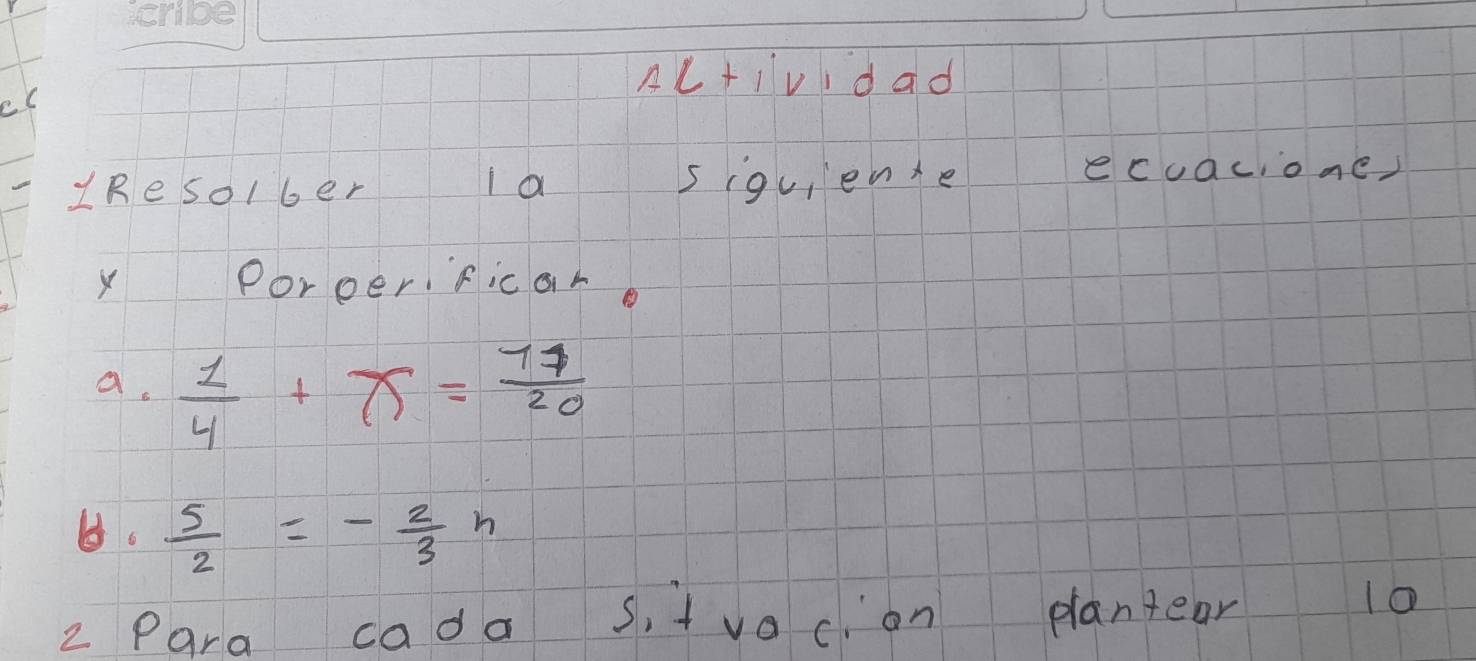 cribe
Actividad
1 Resolber la siguiente ecuaciones
y Porberificar.
a. 1/4 + x = 17/20
b. 5/2 = - 2/3 n
2 Para cada situacion plantear la